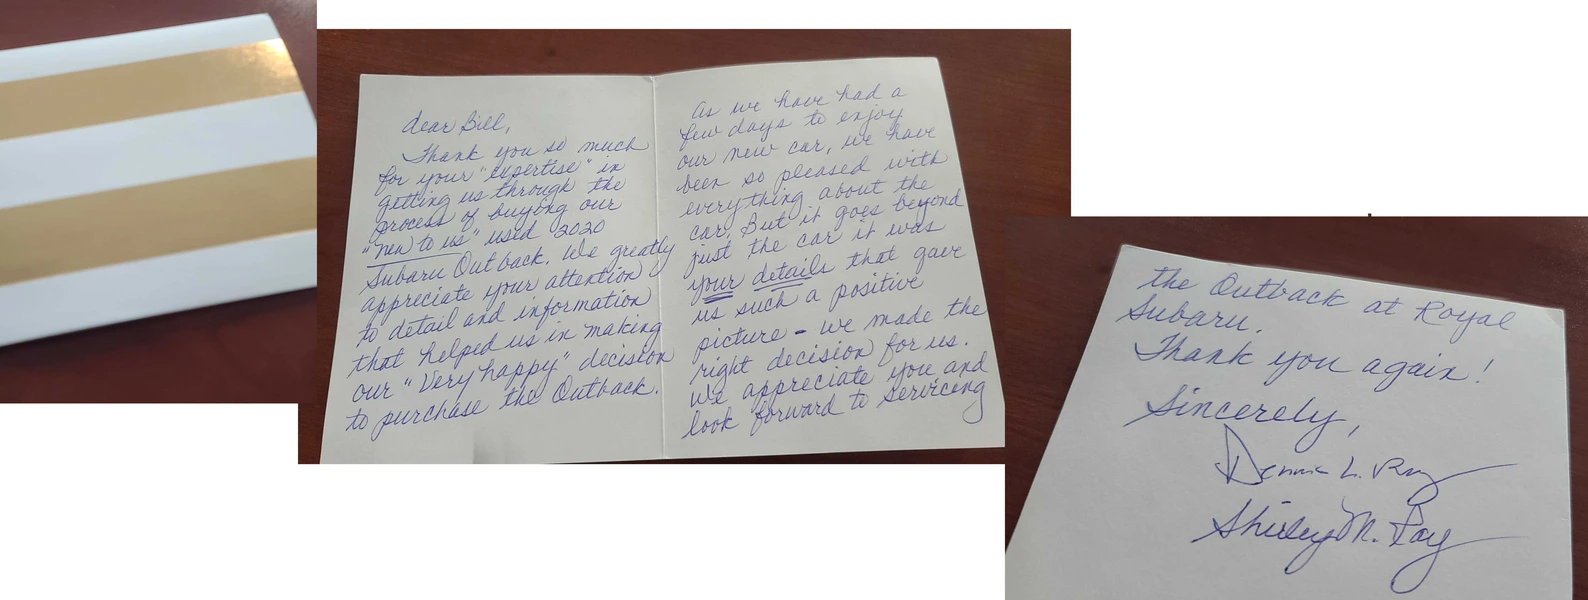 dear Bill,
Thank you so much
for your "expertise" in
getting us through the
process of buying our
"new to us" used 2020
Subaru Outback. We greatly
appreciate your attention
to detail and information
that helped us in making
our "Very happy" decision
to purchase the Outback.
As we have had a
few days to enjoy
our new car, we have
been so pleased with
everything about the
car. But it goes beyond
just the car it was
your details that gave
us such a positive
picture - we made the
right decision for us.
We appreciate you and
look forward to servicing
the Outback at Royal
Subaru.
Thank you again!
Sincerely,
Dennis L.
Shirley M.